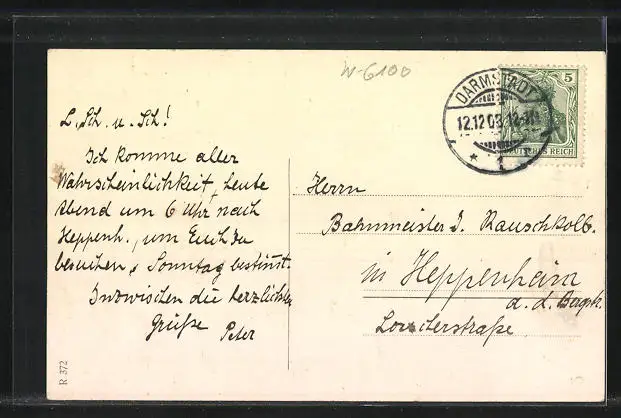 W-6100
DARMSTADT
12.12.08.12-1N
* 1
5
DEUTSCHES REICH
L. Sch. u. Sch!
Ich komme aller
Wahrscheinlichkeit, heute
Abend um 6 Uhr nach
Heppenh., um Euch zu
besuchen, Sonntag bestimt.
Inzwischen die herzlichsten
Grüße Peter
Herrn
Bahnmeister J. Rauschkolb.
in Heppenheim
a. d. Bergstr.
Lorscherstraße
R 372